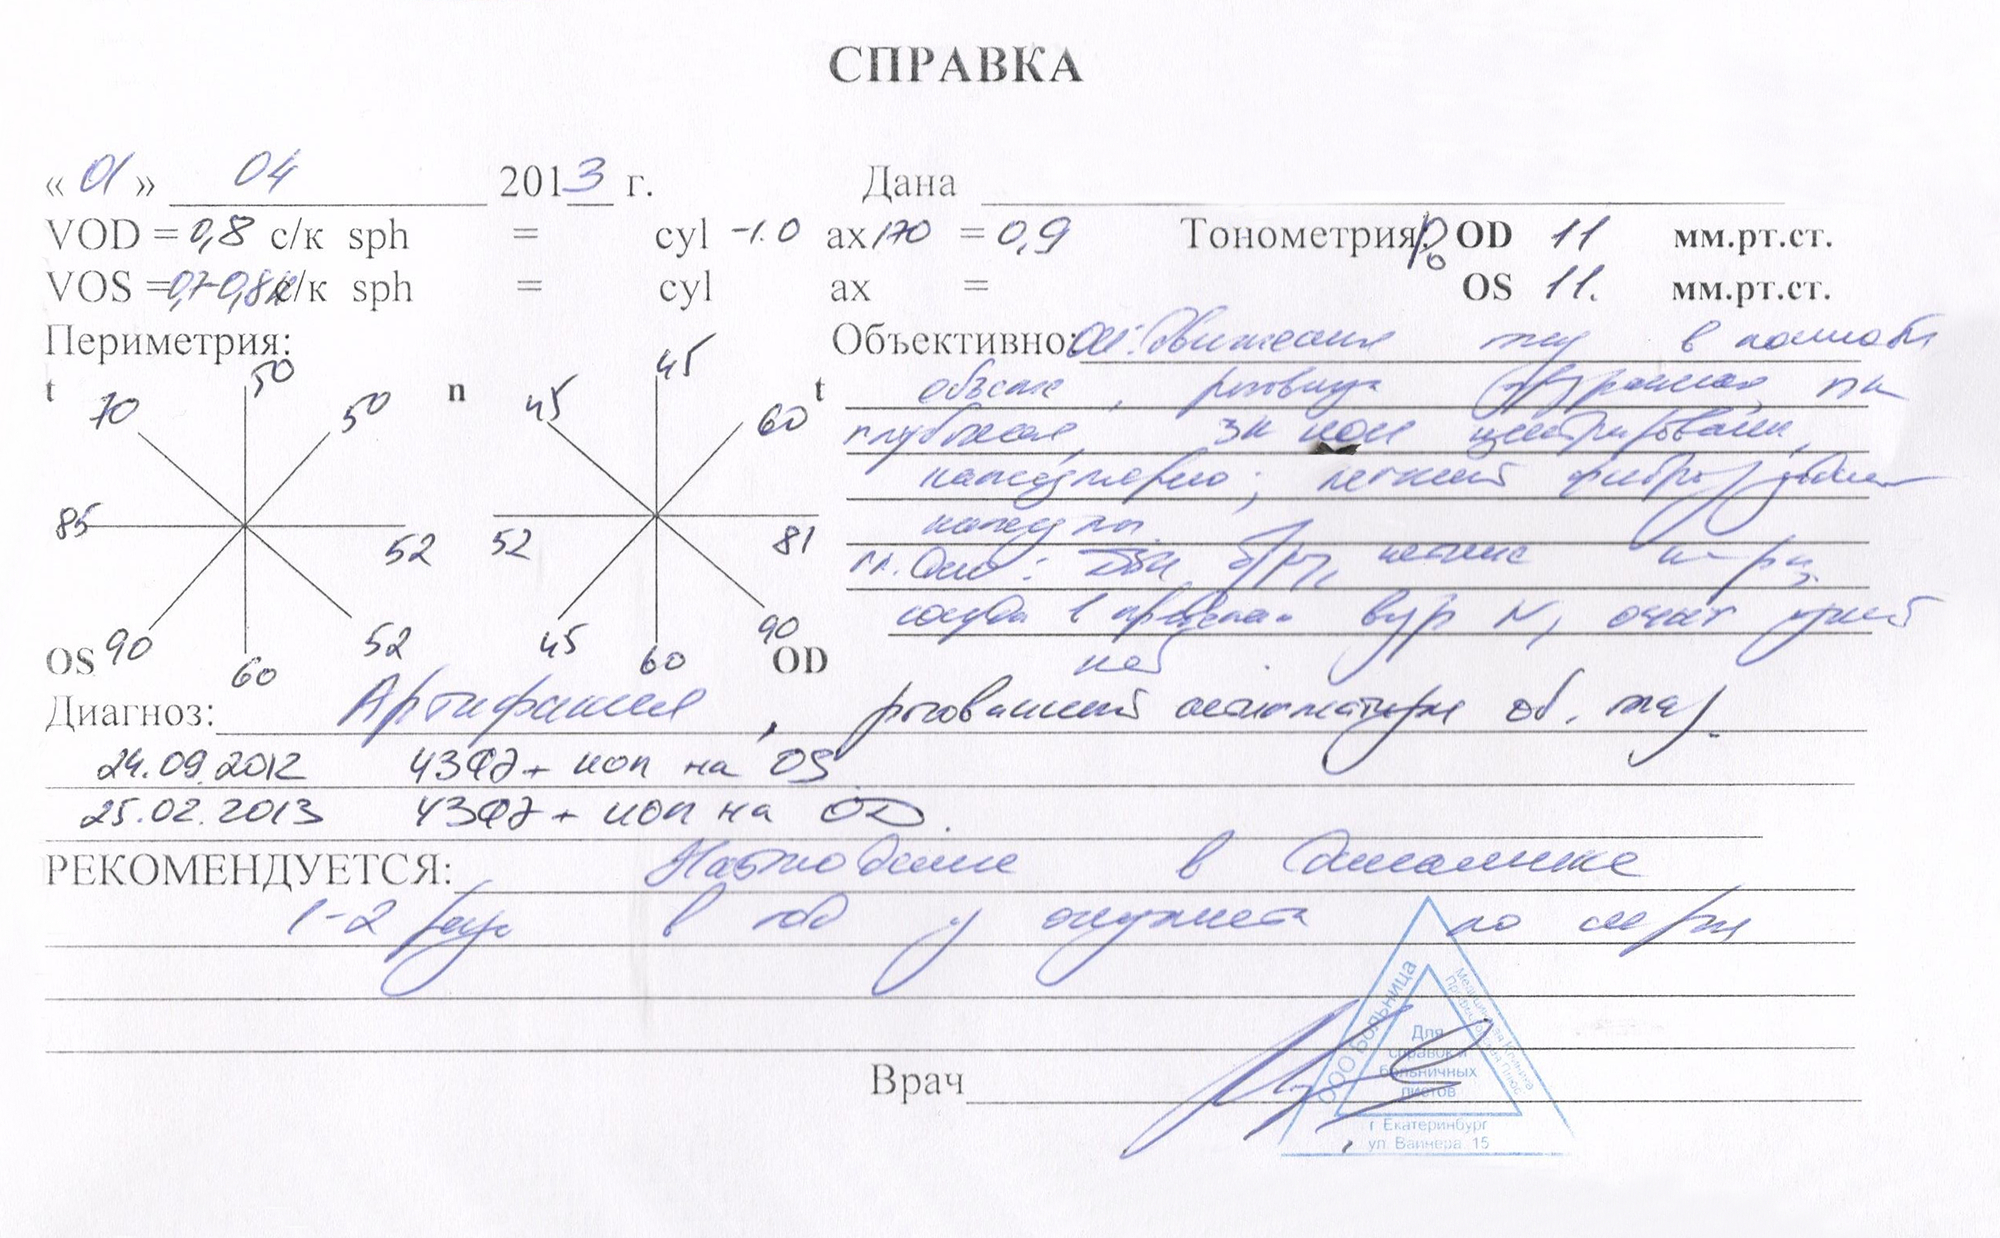 СПРАВКА
« 01 » 04 2013 г. Дана
VOD = 0,8 с/к sph = cyl -1.0 ax 170 = 0,9 Тонометрия: Po OD 11 мм.рт.ст.
VOS = 0,7-0,8 с/к sph = cyl ax = OS 11. мм.рт.ст.
Периметрия: Объективно: OU: Движения глаз в полном
объеме, роговица прозрачная, пк
глубокая, ЗК ИОЛ центрирована,
легкий фиброз задней
капсулы.
Гл. дно: ДЗН
сосуды в N, очаг
нет
t 70 50 50 n 45 45 60 t
85 52 52 81
OS 90 60 52 45 60 90 OD
Диагноз: Артифакия, роговичный астигматизм об. глаз.
24.09.2012 УЗФЭ + ИОЛ на OS
25.02.2013 УЗФЭ + ИОЛ на OD.
РЕКОМЕНДУЕТСЯ: Наблюдение в динамике
1-2 раза в год у окулиста по м/ж
Врач
ООО Больница
Медицинская клиника
Профессорская Плюс
Для
справок и
больничных
листов
г. Екатеринбург
ул. Вайнера, 15